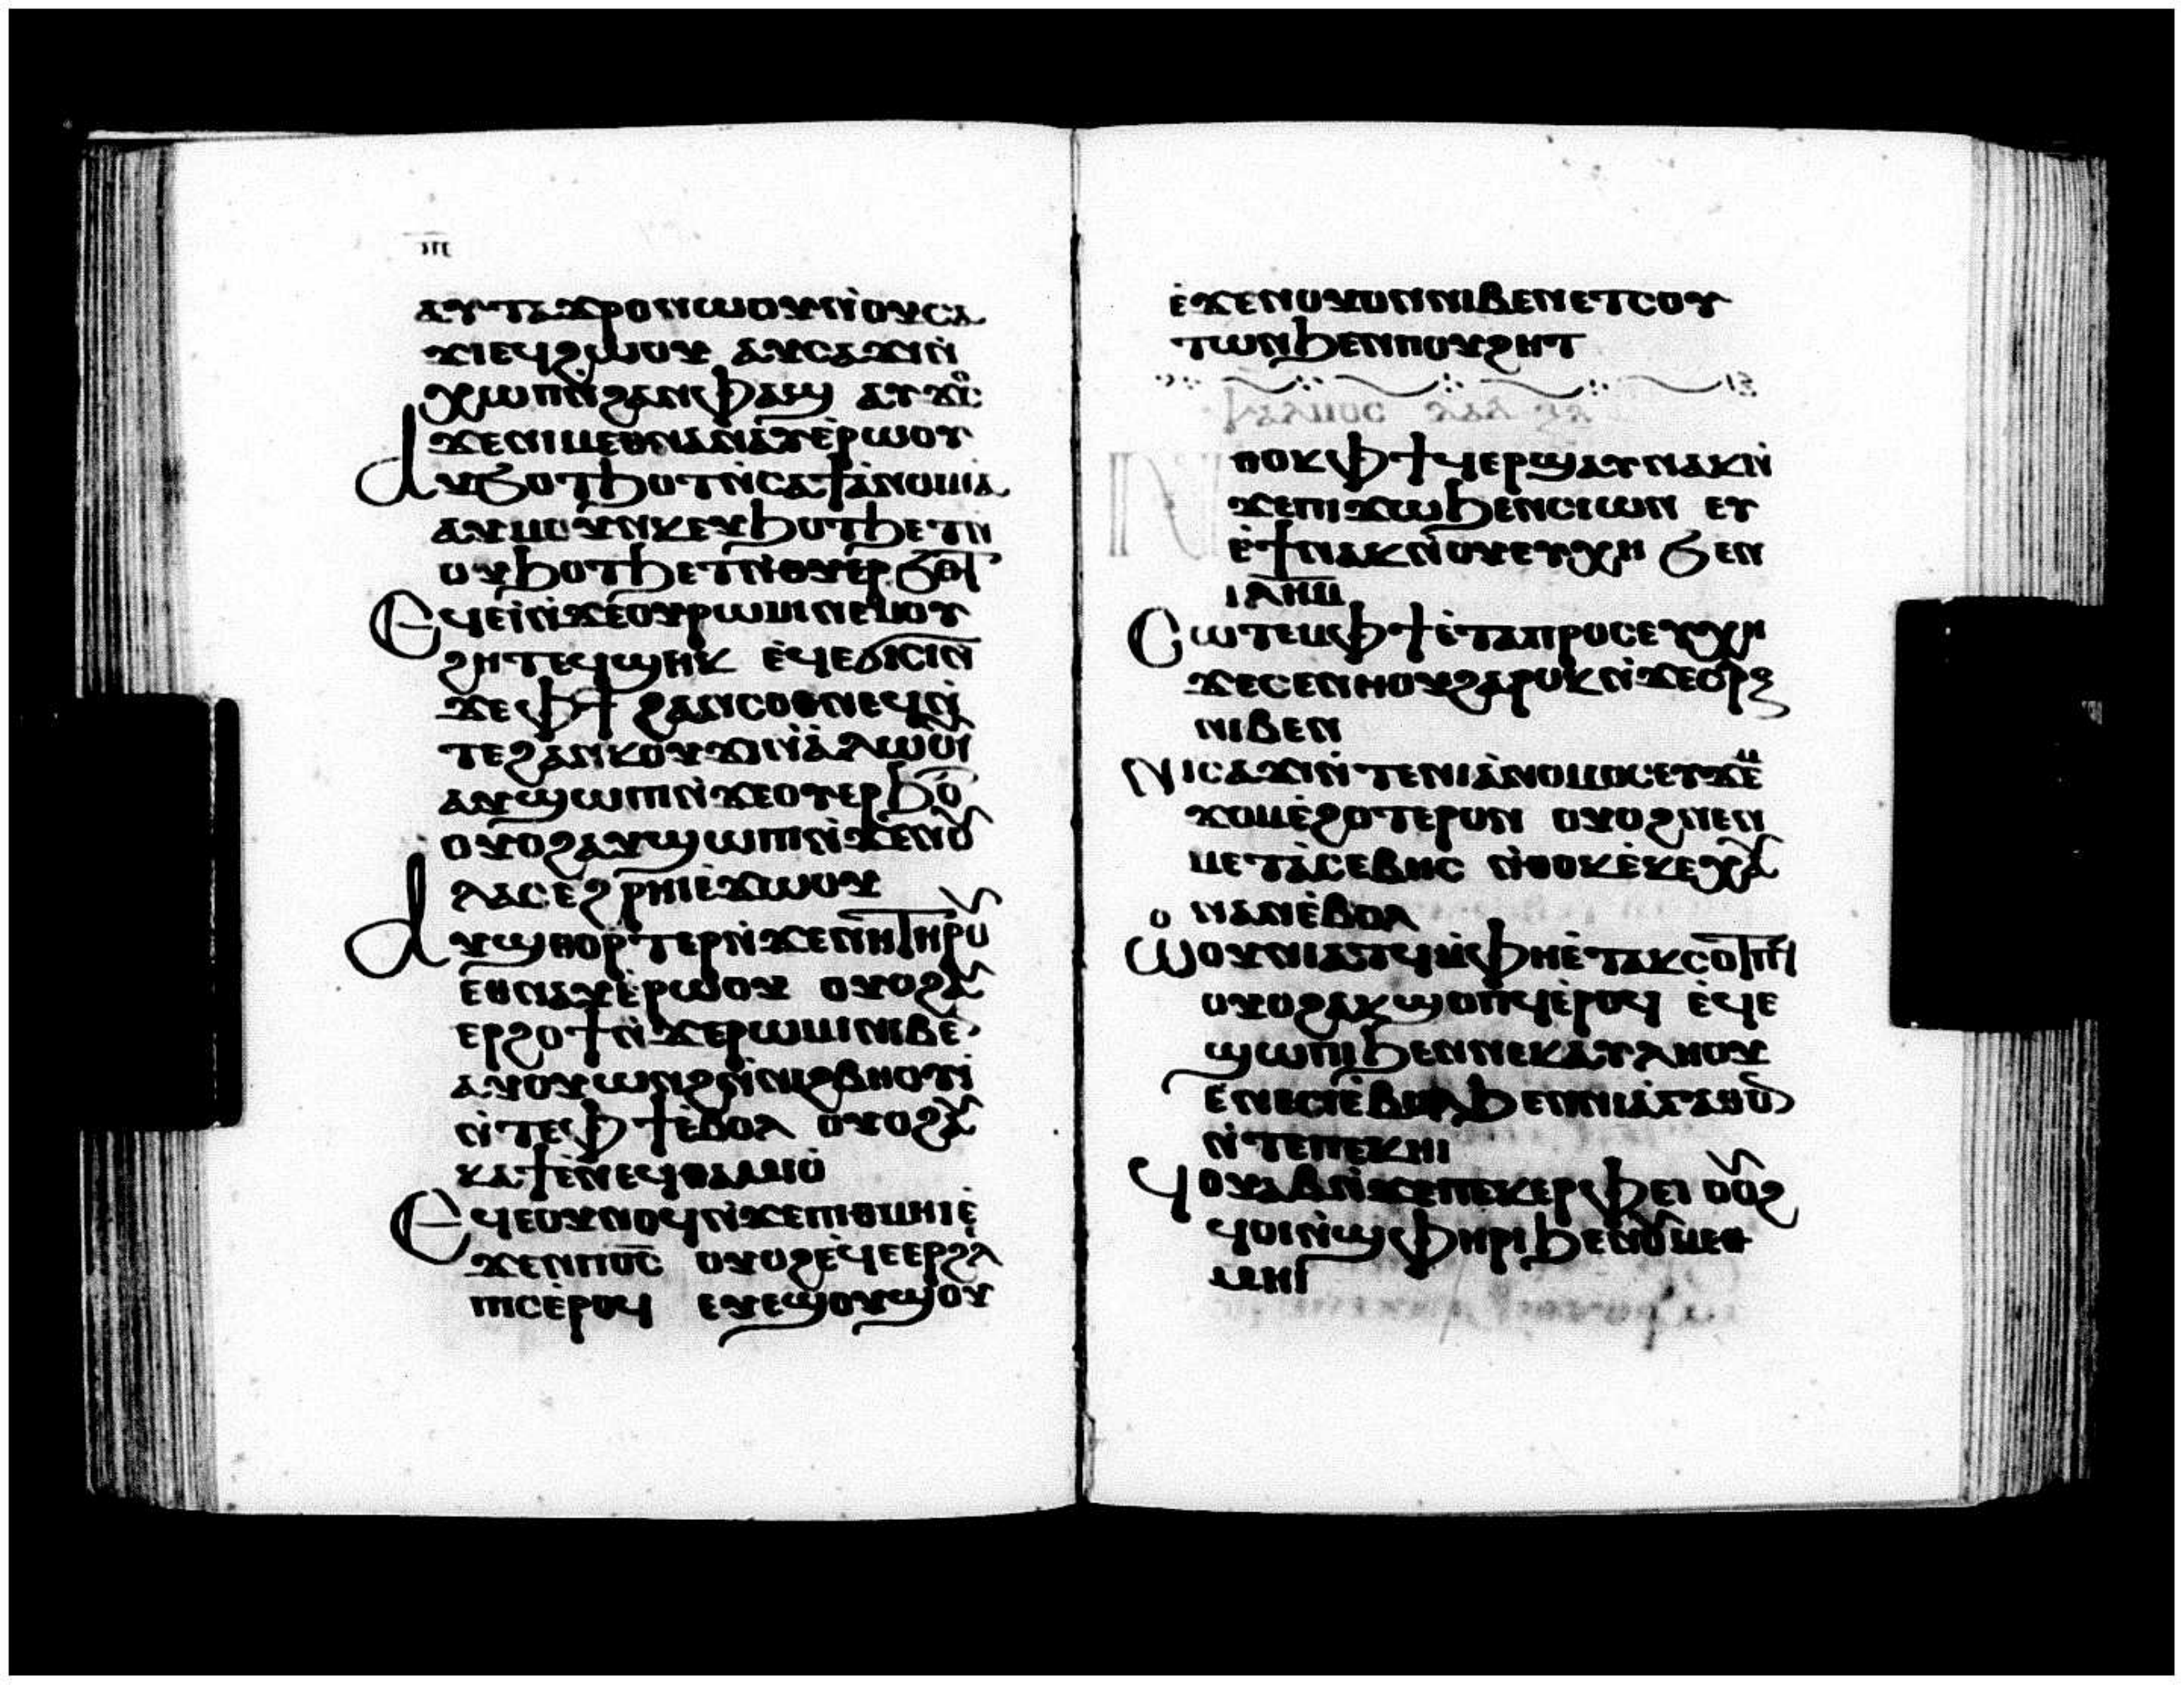 ⲁⲩⲧⲁϫⲣⲟⲛⲱⲟⲩⲛ̀ⲟⲩⲥⲁ
ϫⲓⲉϥϩⲱⲟⲩ ⲁⲩⲥⲁϫⲓⲛ̀
ⲭⲱⲡⲛ̀ϩⲁⲛⲫⲁϣ ⲁⲩϫⲟⲥ
ϫⲉⲛⲓⲙⲉⲑⲛⲁⲛⲁⲩⲉ̀ⲣⲱⲟⲩ
ⲁⲩϭⲟⲧϧⲟⲧⲛ̀ⲥⲁϯⲁ̀ⲛⲟⲙⲓⲁ
ⲁⲩⲙⲟⲩⲛⲕⲉⲩϧⲟⲧϧⲉⲧⲛ̀
ⲟⲩϧⲟⲧϧⲉⲧⲛ̀ⲑⲩⲉⲣϭⲟⲧ
ⲉϥⲉⲓ̀ⲛ̀ϫⲉⲟⲩⲣⲱⲙⲓⲛⲉⲙⲟⲩ
ϩⲏⲧⲉϥϣⲏⲕ ⲉ̀ϥⲉϭⲓⲥⲓⲛ̀
ϫⲉⲫϯ ϩⲁⲛⲥⲟⲑⲛⲉϥⲛ̀
ⲧⲉϩⲁⲛⲕⲟⲩϫⲓⲛ̀ⲁ̀ⲗⲱⲟⲩⲓ̀
ⲁⲩϣⲱⲡⲓⲛ̀ϫⲉⲟⲩⲉⲣϧⲟ
ⲟⲩⲟϩⲁⲩϣⲱⲡⲓⲛ̀ϫⲉⲛⲟⲩ
ⲗⲁⲥⲉϩⲣⲏⲓⲉ̀ϫⲱⲟⲩ
ⲁⲩϣⲑⲟⲣⲧⲉⲣⲛ̀ϫⲉⲛⲏⲧⲏⲣⲟⲩ
ⲉⲑⲛⲁⲩⲉ̀ⲣⲱⲟⲩ ⲟⲩⲟϩⲁⲩ
ⲉⲣϩⲟϯⲛ̀ϫⲉⲣⲱⲙⲓⲛⲓⲃⲉ
ⲁⲩⲟⲩⲱⲛϩⲛ̀ⲛⲓϩⲃⲏⲟⲩⲓ̀
ⲛ̀ⲧⲉⲫϯⲉ̀ⲃⲟⲗ ⲟⲩⲟϩⲁⲩ
ⲕⲁϯⲉ̀ⲛⲉϥⲑⲁⲙⲓⲟ̀
ⲉϥⲉⲟⲩⲛⲟϥⲛ̀ϫⲉⲡⲓⲑⲙⲏⲓⲉ̀
ϫⲉⲛⲡⲟ̅ⲥ̅ ⲟⲩⲟϩⲉ̀ϥⲉⲉⲣϩⲉⲗ
ⲡⲓⲥⲉ̀ⲣⲟϥ ⲉⲩⲉϣⲟⲩϣⲟⲩ
ⲉ̀ϫⲉⲛⲟⲩⲟⲛⲛⲓⲃⲉⲛⲉⲧⲥⲟⲩ
ⲧⲱⲛϧⲉⲛⲡⲟⲩϩⲏⲧ
ⲛⲑⲟⲕⲫϯϥⲉⲣϣⲁⲩⲛⲁⲕⲛ̀
ϫⲉⲡⲓϫⲱϧⲉⲛⲥⲓⲱⲛ ⲉⲩ
ⲉ̀ϯⲛⲁⲕⲛ̀ⲟⲩⲉⲩⲭⲏ ϭⲉⲛ
ⲓ̅ⲗ̅ⲏ̅ⲙ̅
ⲥⲱⲧⲉⲙⲫϯⲉ̀ⲧⲁⲡⲣⲟⲥⲉⲩⲭⲏ
ϫⲉⲥⲉⲛⲏⲟⲩϩⲁⲣⲟⲕⲛ̀ϫⲉⲥⲣⲝ
ⲛⲓⲃⲉⲛ
ⲛⲓⲥⲁϫⲓⲛ̀ⲧⲉⲛⲓⲁ̀ⲛⲟⲙⲟⲥⲉⲧϫⲉⲙ
ϫⲟⲙⲉ̀ϩⲟⲧⲉⲣⲟⲛ ⲟⲩⲟϩⲛⲉⲛ
ⲙⲉⲧⲁ̀ⲥⲉⲃⲏⲥ ⲛ̀ⲑⲟⲕⲉ̀ⲕⲉⲭⲁ
ⲛⲁⲛⲉ̀ⲃⲟⲗ
ⲱⲟⲩⲛⲓⲁⲧϥⲙ̀ⲫⲏⲉ̀ⲧⲁⲕⲥⲟⲧⲡϥ
ⲟⲩⲟϩⲁⲕϣⲟⲡϥⲉ̀ⲣⲟϥ ⲉ̀ϥⲉ
ϣⲱⲡⲓϧⲉⲛⲛⲉⲕⲁⲩⲗⲏⲟⲩ
ⲉⲛⲉⲥⲓⲉ̀ⲃⲟⲗϧⲉⲛⲛⲓⲁ̀ⲅⲁⲑⲟⲛ
ⲛ̀ⲧⲉⲡⲉⲕⲏⲓ
ϥⲟⲩⲁⲃⲛ̀ϫⲉⲡⲉⲕⲉⲣⲫⲉⲓ ⲟⲩⲟϩ
ϥⲟⲓⲛ̀ϣⲫⲏⲣⲓϧⲉⲛⲟⲩⲙⲉⲑ
ⲙⲏⲓ